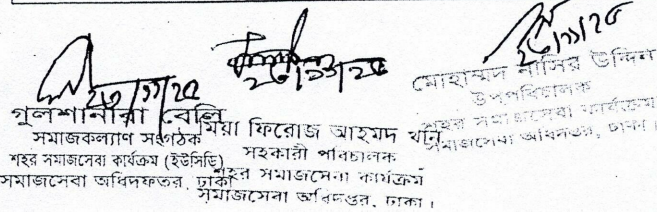 ২৩/১১/২৫
গুলশানারা বেলি
সমাজকল্যাণ সংগঠক
শহর সমাজসেবা কার্যক্রম (ইউসিডি)
সমাজসেবা অধিদফতর, ঢাকা
২৩/১১/২৫
মিয়া ফিরোজ আহমদ খান
সহকারী পরিচালক
শহর সমাজসেবা কার্যক্রম
সমাজসেবা অধিদপ্তর, ঢাকা।
২৩/১১/২৫
মোহাম্মদ নাসির উদ্দিন
উপপরিচালক
শহর সমাজসেবা কার্যক্রম
সমাজসেবা অধিদপ্তর, ঢাকা।